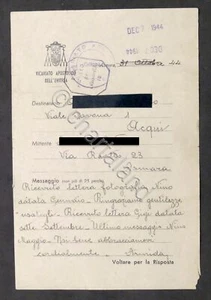 DEC 7 1944
VICARIATO APOSTOLICO
DELL'ERITREA
31 Ottobre 44
Destinatario
Viale Savona 1
Acqui
Mittente
Via 23
Asmara
Messaggio (non più di 25 parole)
Ricevuto lettera fotografia Nino
datata Gennaio. Ringraziamo gentilezza
usatagli. Ricevuto lettera Gigi datata
otto Settembre. Ultimo messaggio Nino
Maggio. Noi bene abbracciamovi
cordialmente.
Voltare per la Risposta